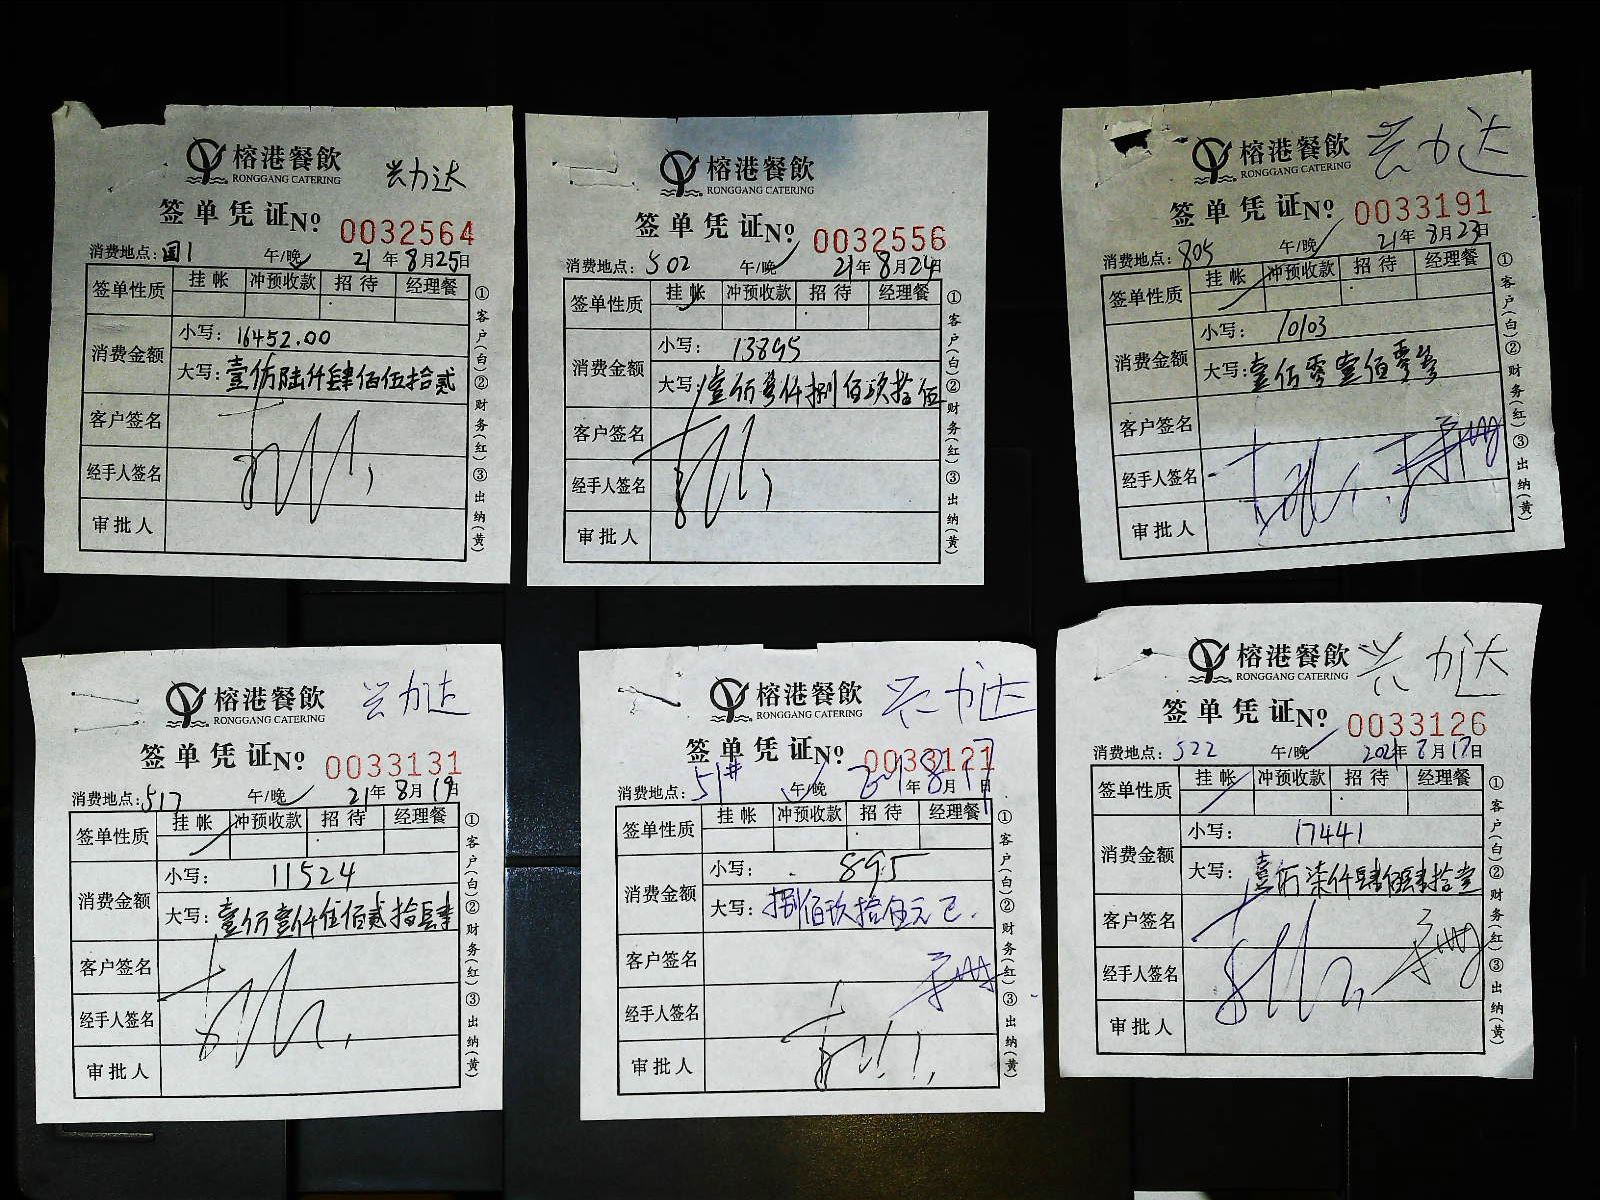 榕港餐飲
RONGGANG CATERING
兴力达
签单凭证No 0032564
消费地点：国1 午/晚 21年8月25日
签单性质 挂帐 冲预收款 招待 经理餐
消费金额 小写：16452.00
大写：壹仟陆仟肆佰伍拾贰
客户签名
经手人签名
审批人
①客户（白）②财务（红）③出纳（黄）
榕港餐飲
RONGGANG CATERING
签单凭证No 0032556
消费地点：502 午/晚 21年8月24日
签单性质 挂帐 冲预收款 招待 经理餐
消费金额 小写：13895
大写：壹万叁仟捌佰玖拾伍
客户签名
经手人签名
审批人
①客户（白）②财务（红）③出纳（黄）
榕港餐飲
RONGGANG CATERING
兴力达
签单凭证No 0033191
消费地点：805 午/晚 21年8月23日
签单性质 挂帐 冲预收款 招待 经理餐
消费金额 小写：10103
大写：壹万零壹佰零叁
客户签名
经手人签名
审批人
①客户（白）②财务（红）③出纳（黄）
榕港餐飲
RONGGANG CATERING
兴力达
签单凭证No 0033131
消费地点：517 午/晚 21年8月19日
签单性质 挂帐 冲预收款 招待 经理餐
消费金额 小写：11524
大写：壹万壹仟伍佰贰拾肆
客户签名
经手人签名
审批人
①客户（白）②财务（红）③出纳（黄）
榕港餐飲
RONGGANG CATERING
兴力达
签单凭证No 0033121
消费地点：51# 午/晚 21年8月17日
签单性质 挂帐 冲预收款 招待 经理餐
消费金额 小写：895
大写：捌佰玖拾伍元正
客户签名
经手人签名
审批人
①客户（白）②财务（红）③出纳（黄）
榕港餐飲
RONGGANG CATERING
兴力达
签单凭证No 0033126
消费地点：522 午/晚 2021年8月17日
签单性质 挂帐 冲预收款 招待 经理餐
消费金额 小写：17441
大写：壹万柒仟肆佰肆拾壹
客户签名
经手人签名
审批人
①客户（白）②财务（红）③出纳（黄）